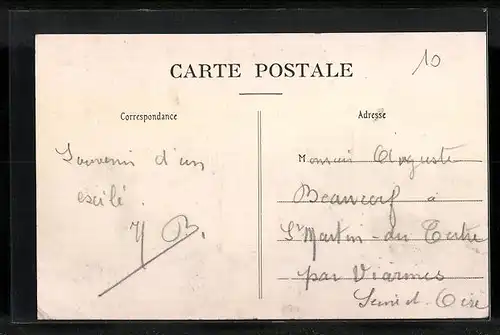 CARTE POSTALE
10
Correspondance
Adresse
Souvenir d'un
exilé.
B.
Monsieur Auguste
à
St Martin-du Tertre
par Viarmes
Seine et-Oise